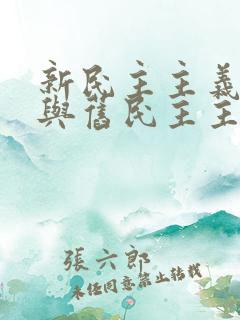 新民主主義
與舊民主主
張六郎
未经同意禁止转载